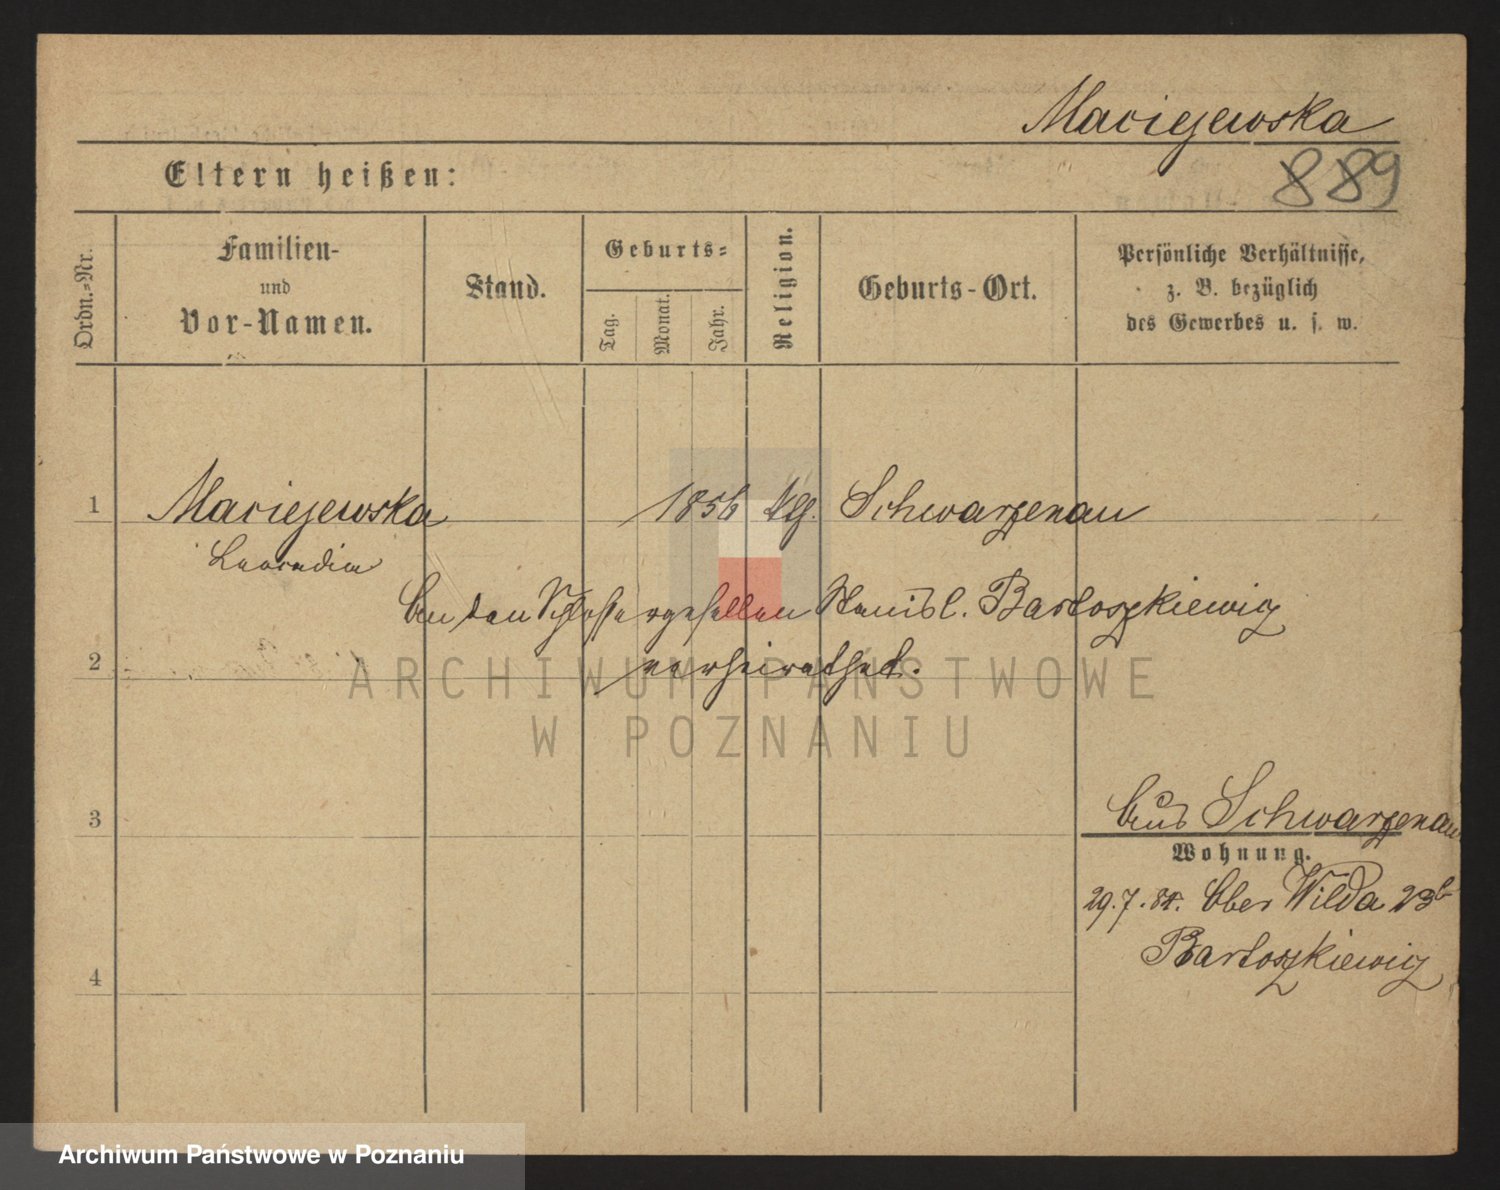 Maciejewska
889
Eltern heißen:
Ordn.-Nr.
Familien-
und
Vor-Namen.
Stand.
Geburts-
Tag.
Monat.
Jahr.
Religion.
Geburts-Ort.
Persönliche Verhältnisse,
z. B. bezüglich
des Gewerbes u. s. w.
1
Maciejewska
1856
Schwarzenau
Leocadia
An den Schlossergesellen Stanisl. Bartoszkiewicz
2
verheirathet.
ARCHIWUM PAŃSTWOWE
W POZNANIU
3
Aus Schwarzenau
Wohnung.
29.7.84. Ober Wilda 23b
Bartoszkiewicz
4
Archiwum Państwowe w Poznaniu